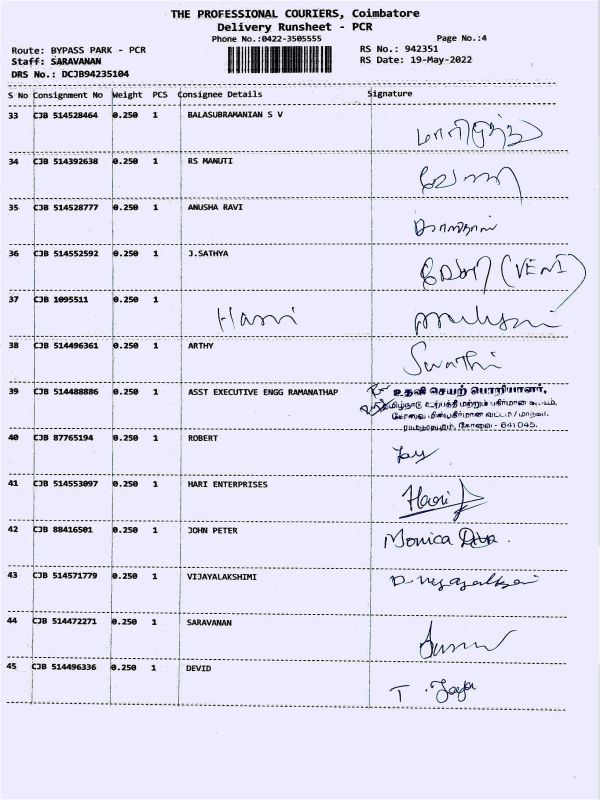 THE PROFESSIONAL COURIERS, Coimbatore
Delivery Runsheet - PCR
Phone No.:0422-3505555
Page No.:4
Route: BYPASS PARK - PCR
RS No.: 942351
Staff: SARAVANAN
RS Date: 19-May-2022
DRS No.: DCJB94235104
S No Consignment No Weight PCS Consignee Details Signature
33 CJB 514528464 0.250 1 BALASUBRAMANIAN S V
34 CJB 514392638 0.250 1 RS MANUTI
35 CJB 514528777 0.250 1 ANUSHA RAVI
36 CJB 514552592 0.250 1 J.SATHYA
(VENI)
37 CJB 1095511 0.250 1
38 CJB 514496361 0.250 1 ARTHY
Swathi
39 CJB 514488886 0.250 1 ASST EXECUTIVE ENGG RAMANATHAP
உதவி செயற் பொறியாளர்,
தமிழ்நாடு உற்பத்தி மற்றும் பகிர்மான கழகம்,
கோவை மின்பகிர்மான வட்டம் / மாநகர்,
இராமநாதபுரம், கோவை - 641 045.
40 CJB 87765194 0.250 1 ROBERT
41 CJB 514553097 0.250 1 HARI ENTERPRISES
Hari
42 CJB 88416501 0.250 1 JOHN PETER
Monica
43 CJB 514571779 0.250 1 VIJAYALAKSHIMI
44 CJB 514472271 0.250 1 SARAVANAN
45 CJB 514496336 0.250 1 DEVID
T. Jaya